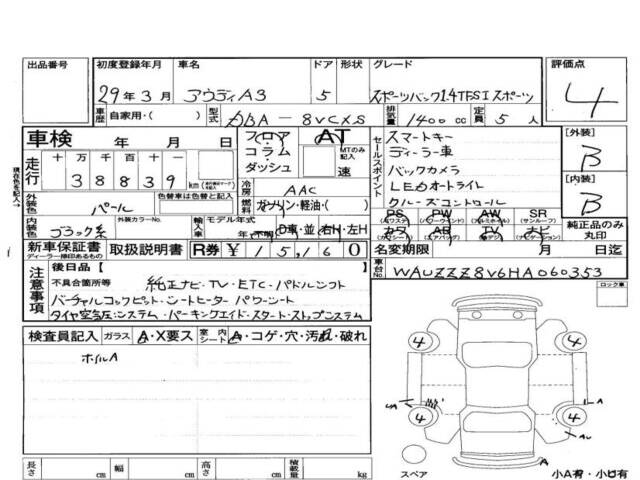 出品番号 初度登録年月 車名 ドア 形状 グレード 評価点
29年3月 アウディA3 5 スポーツバック1.4TFSI スポーツ 4
車歴 自家用・( ) 型式 DBA-8VCXS 排気量 1400cc 定員 5人
車検 年 月 日 フロア コラム・ダッシュ AT MTのみ記入 速
セールスポイント
スマートキー
ディーラー車
バックカメラ
LEDオートライト
クルーズコントロール
[外装] B
[内装] B
走行 十 万 千 百 十 一
38839 km
冷房 AAC
外装色 パール 色替車は色替と記入 燃料 ガソリン・軽油・( )
内装色 ブラック系 外装カラーNo. 輸入車 モデル年式 D車・並 右H・左H
PS PW AW SR
(パワステ) (パワーウインド) (サンルーフ)
カワ AB TV ナビ
純正品のみ丸印
新車保証書 取扱説明書 R券 ¥15,160 名変期限 年 月 日迄
ディーラー捺印あるもの
車台No. WAUZZZ8V6HA060353
注意事項
後日品[ ]
不具合箇所等 純正ナビ・TV・ETC・パドルシフト
バーチャルコックピット・シートヒーター パワーシート
タイヤ空気圧システム・パーキングエイド・スタートストップシステム
現在色を記入→
ロック車
検査員記入 ガラス A・X要ス 室内シート A・コゲ・穴・汚れ・破れ
ホイルA
4 4
4 4
A
A
スペア
長さ cm 幅 cm 高さ cm 積載量 kg
小A有・小U有